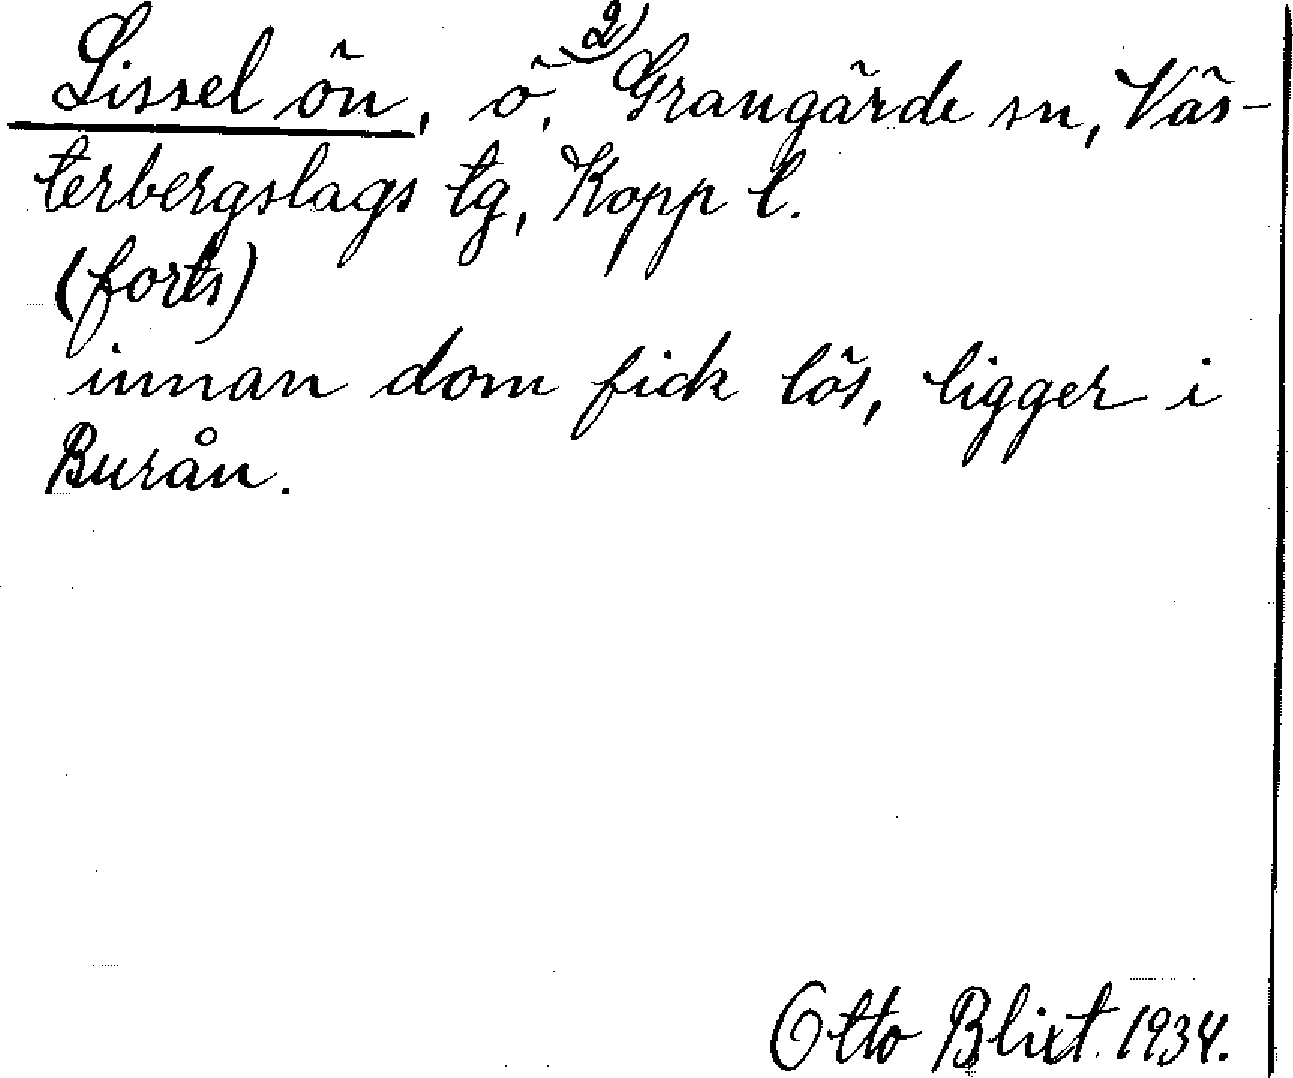 Lissel ön, ö. 2) Grangärde sn, Väs-
terbergslags tg, Kopp l.
(forts)
innan dom fick lös, ligger i
Burån.
Otto Blixt. 1934.